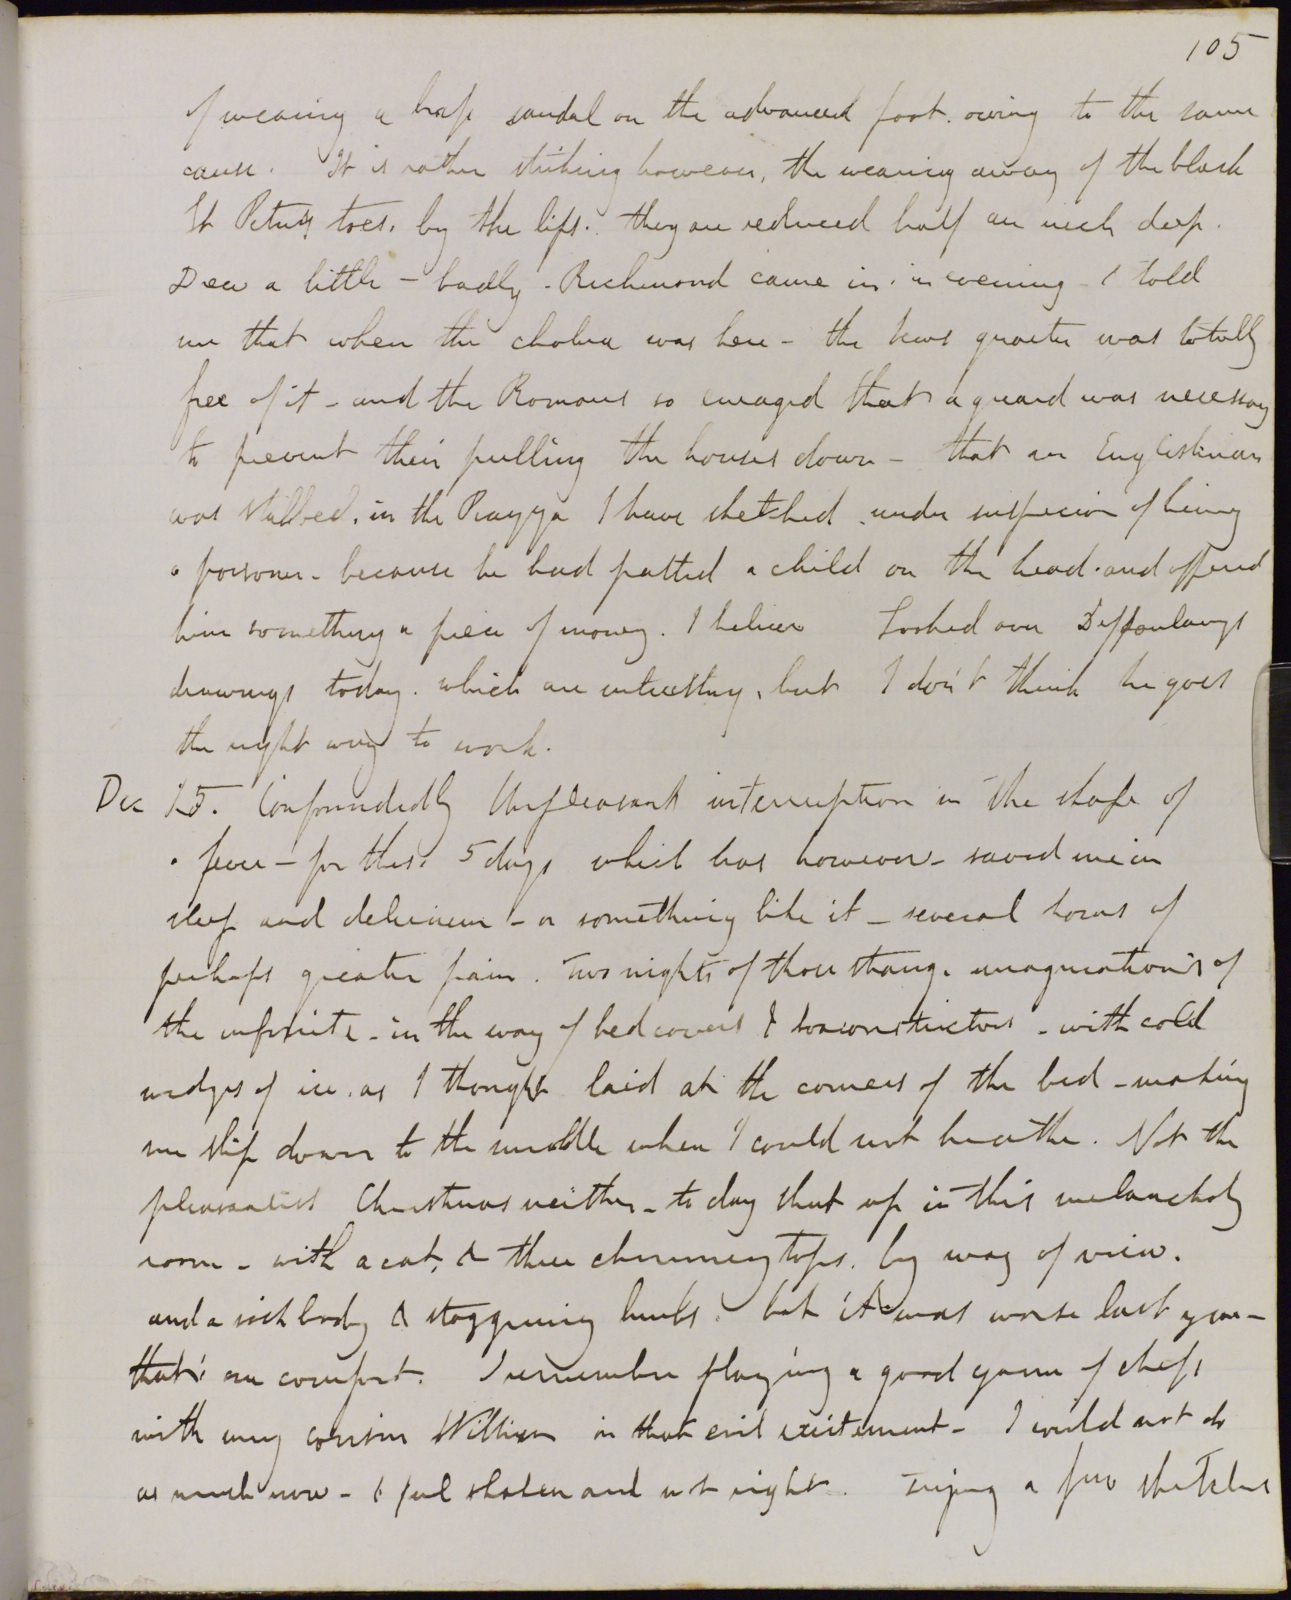 105
of wearing a brass sandal on the advanced foot. owing to the same
cause. It is rather striking however, the wearing away of the black
St Peter's toes. by the lips. they are reduced half an inch deep.
Drew a little - badly - Richmond came in. in evening - & told
me that when the cholera was here - the Jews quarter was totally
free of it - and the Romans so enraged that a guard was necessary
to prevent their pulling the houses down - that an Englishman
was stabbed. in the Piazza I have sketched under suspicion of being
a poisoner - because he had patted a child on the head. and offered
him something a piece of money. I believe Looked over
drawings today. which are interesting, but I don't think he goes
the right way to work.
Dec 25. Confoundedly Unpleasant interruption in the shape of
a fever - for these 5 days which has however - saved me in
sleep and delirium - or something like it - several hours of
perhaps greater pain. Two nights of those strange imaginations of
the infinite - in the way of bed covers & boaconstrictors - with cold
wedges of ice. as I thought laid at the corners of the bed - making
me slip down to the middle when I could not breathe. Not the
pleasantest Christmas neither - to day shut up in this melancholy
room - with a cat, & three chimneytops. by way of view.
and a sick body & staggering limbs. but it was worse last year -
that's one comfort. I remember playing a good game of chess
with my cousin William in that evil excitement - I could not do
as much now - I feel shaken and not right. Trying a few sketches